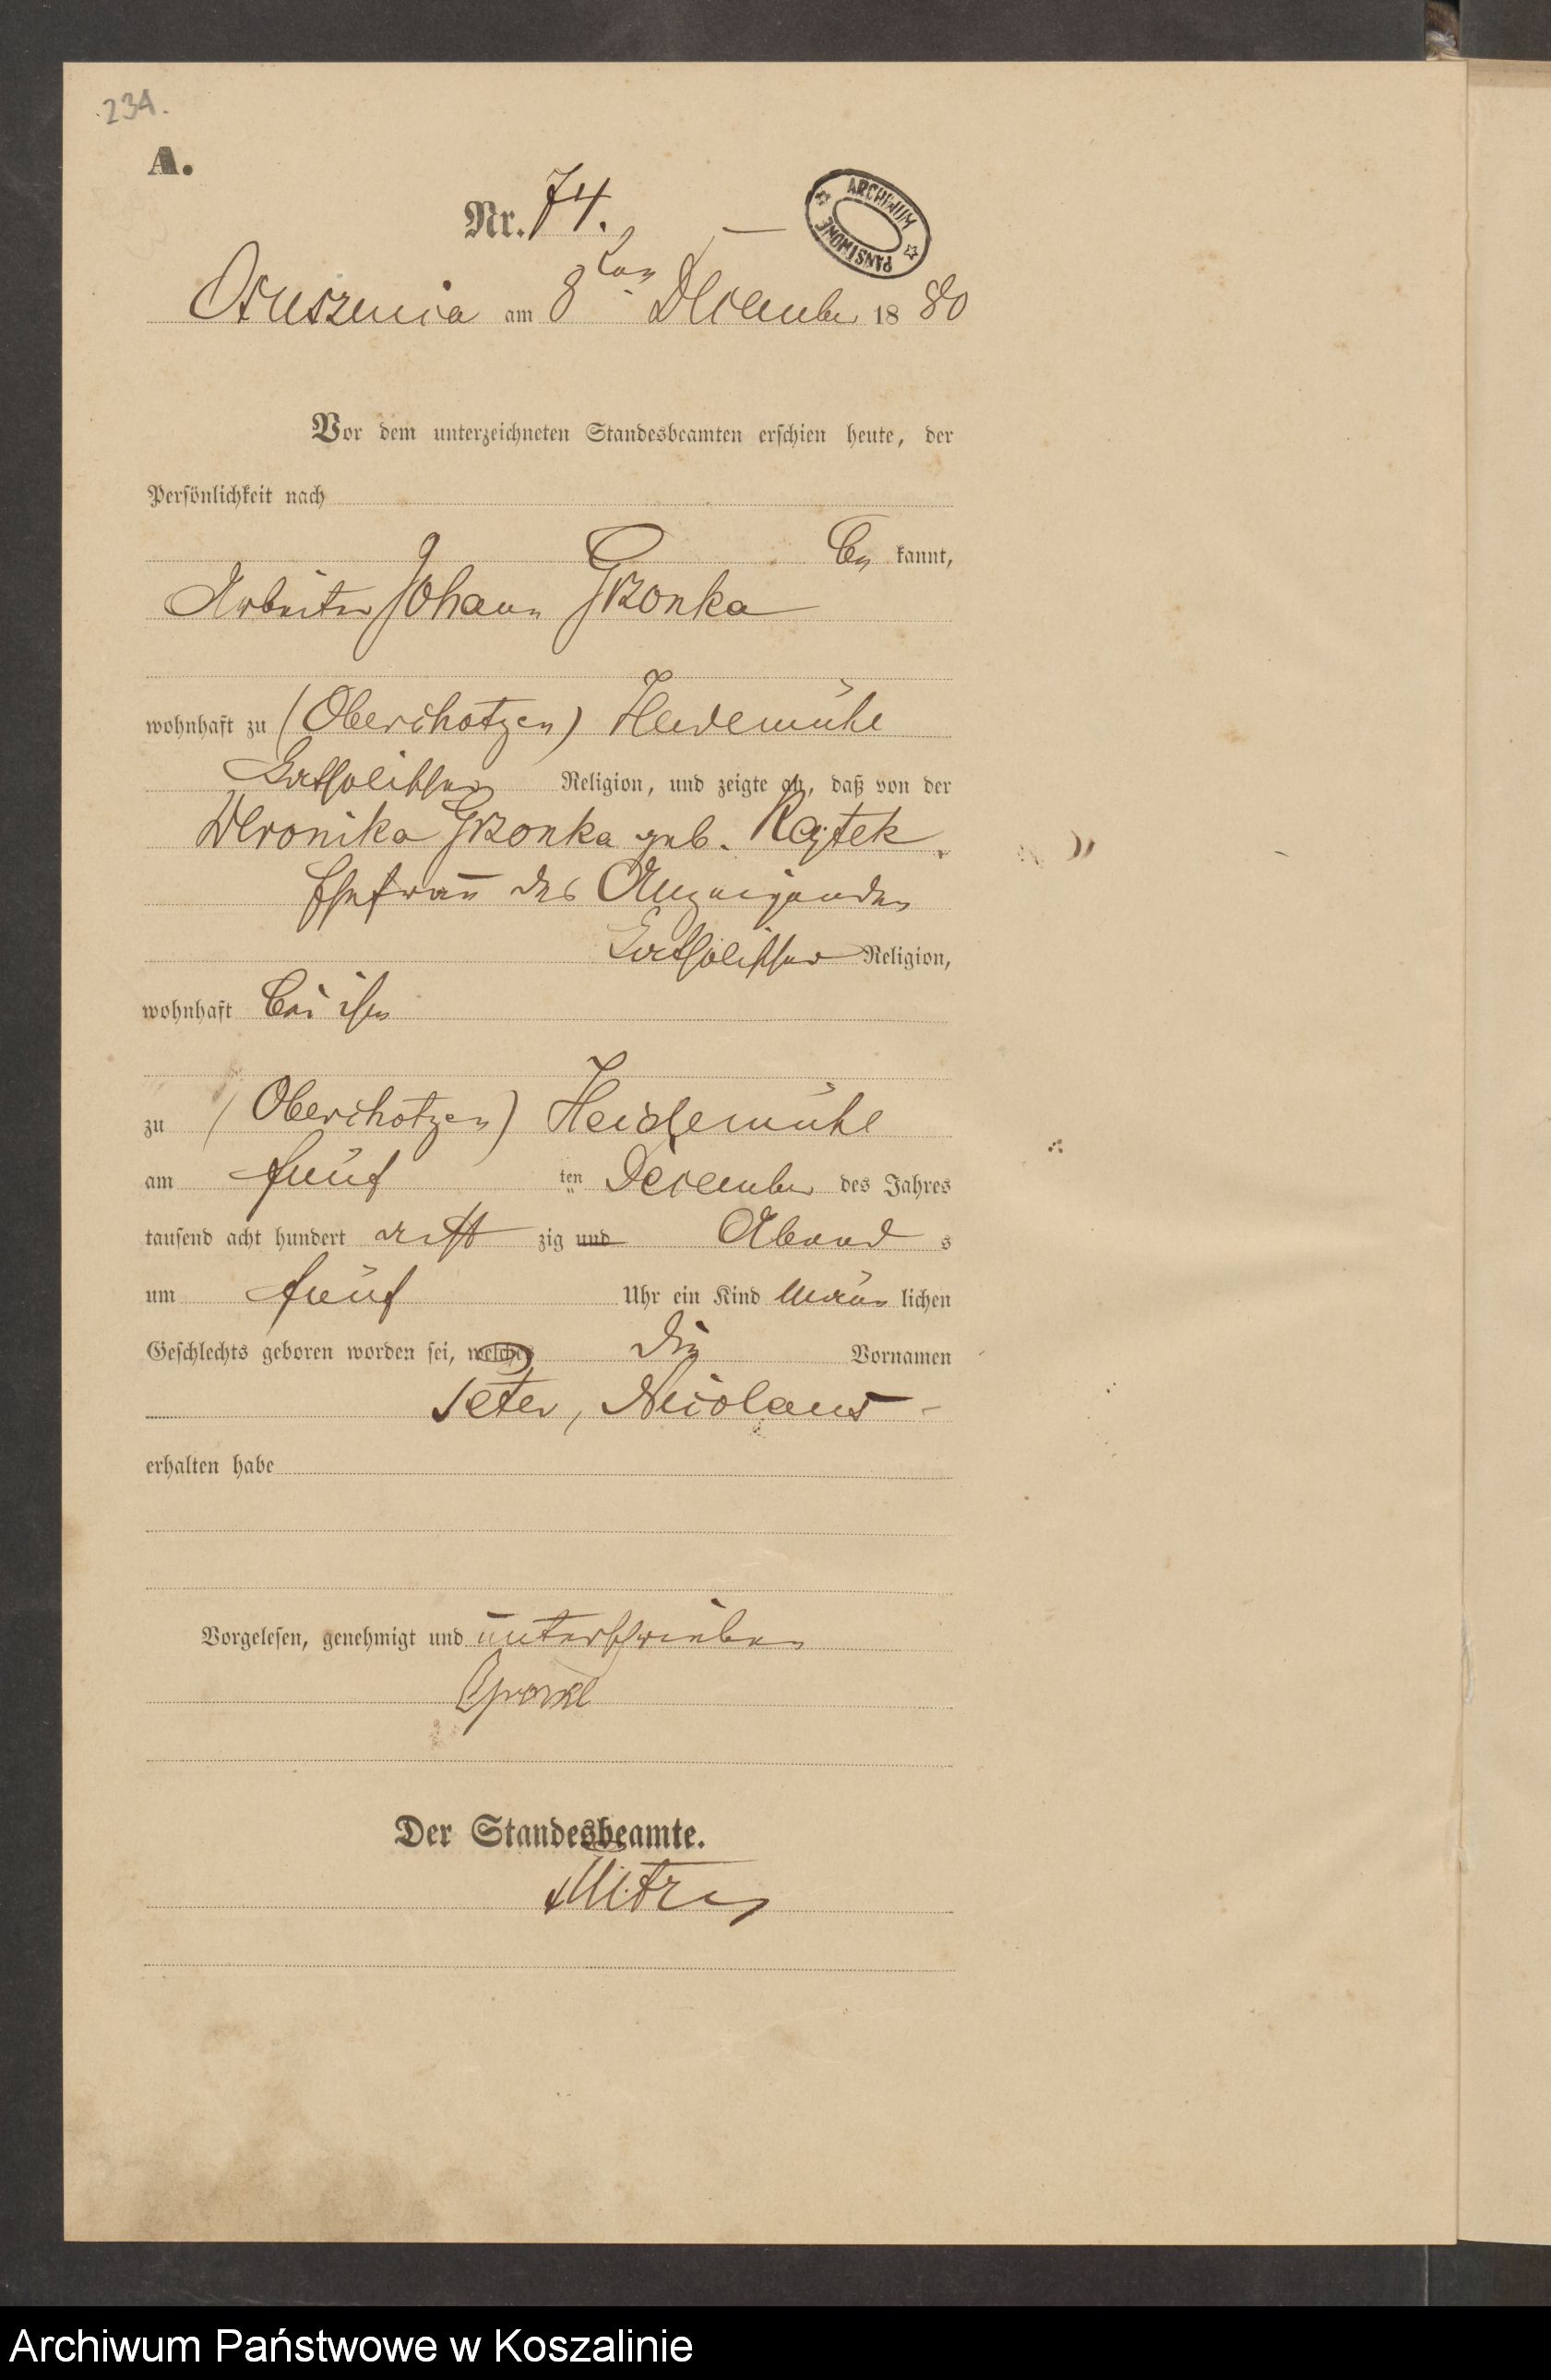 234.
A.
Nr. 74.
ARCHIWUM PAŃSTWOWE
Osuszenica am 8ten December 1880
Vor dem unterzeichneten Standesbeamten erschien heute, der
Persönlichkeit nach
be kannt,
Arbeiter Johann Grzonka
wohnhaft zu (Oberchotzen) Heidemühl
katholischer Religion, und zeigte an, daß von der
Veronika Grzonka geb. Rajtek
Ehefrau des Anzeigenden
katholischer Religion,
wohnhaft bei ihm
zu (Oberchotzen) Heidemühl
am fünf ten December des Jahres
tausend acht hundert acht zig und Abend s
um fünf Uhr ein Kind männ lichen
Geschlechts geboren worden sei, welches die Vornamen
Peter, Nicolaus
erhalten habe
Vorgelesen, genehmigt und unterschrieben
Der Standesbeamte.
Archiwum Państwowe w Koszalinie